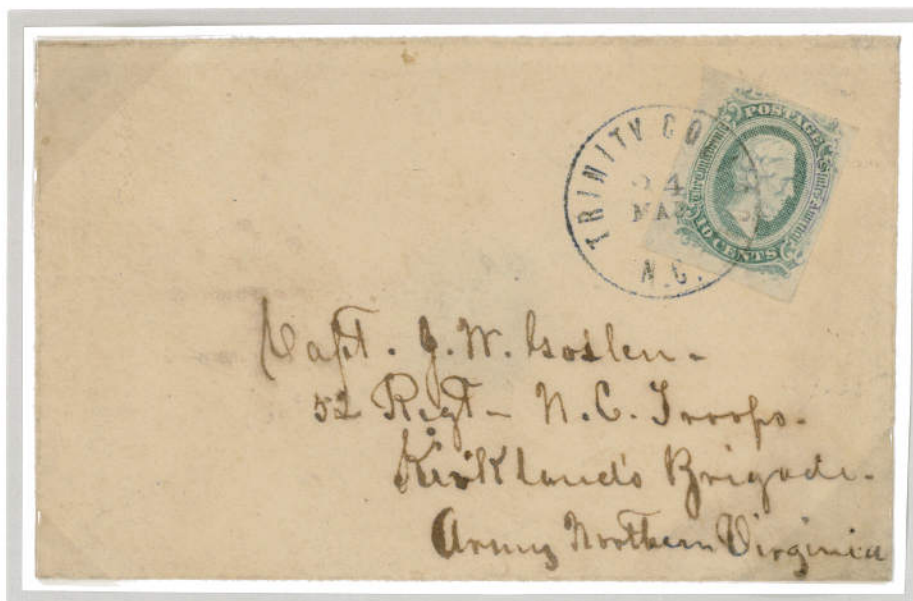 TRINITY CO
24
MAR
N.C.
POSTAGE
Confederate States of America
10 CENTS
Capt. J. W. Goslen-
52 Regt- N.C. Troops-
Kirkland's Brigade-
Army Northern Virginia